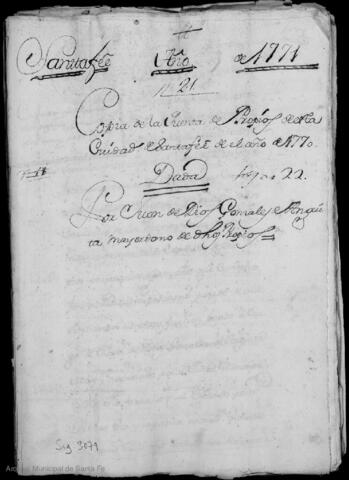 Santafeé Año de 1771
N 21
Copia de la Cuenta de Propios de esta
Ciudad de Santafeé de el año de 1770
Dada 22.
Por Juan de Dios Gonzales
mayordomo de dhos Propios
Sig 3079
Archivo Municipal de Santa Fe